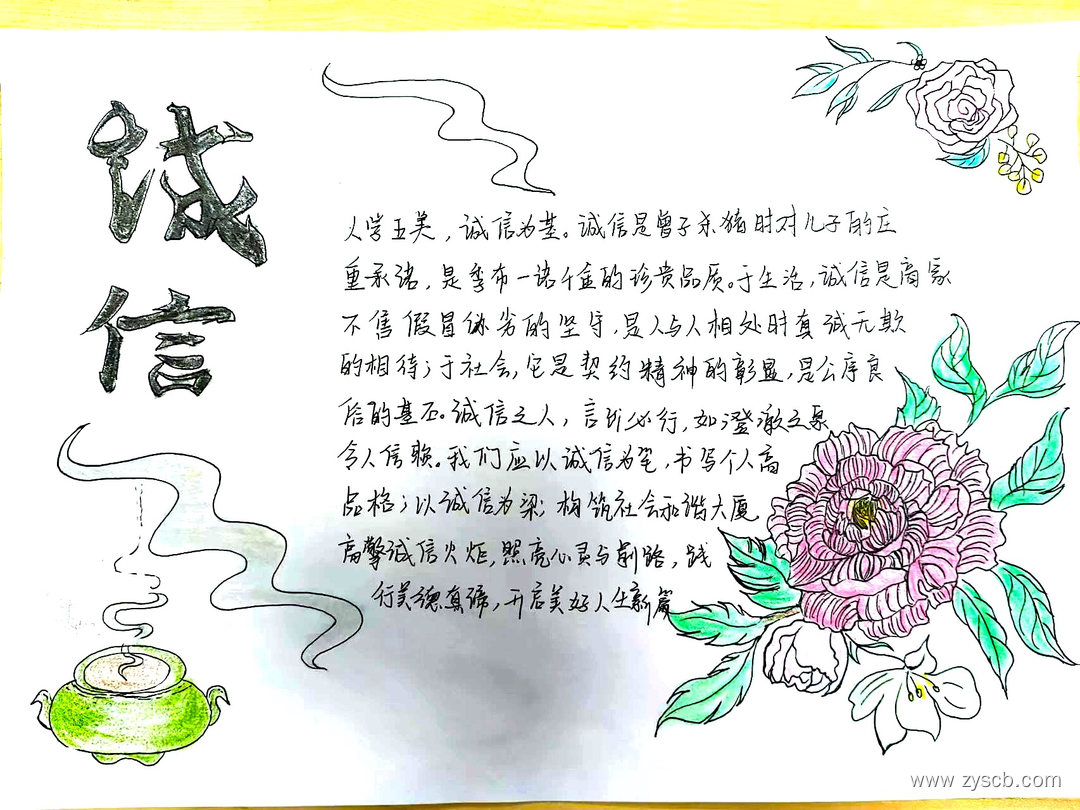 诚
信
人学五美，诚信为基。诚信是曾子杀猪时对儿子的庄
重承诺，是季布一诺千金的珍贵品质。于生活，诚信是商家
不售假冒伪劣的坚守，是人与人相处时真诚无欺
的相待；于社会，它是契约精神的彰显，是公序良
俗的基石。诚信之人，言出必行，如澄澈之泉
令人信赖。我们应以诚信为笔，书写个人高
品格；以诚信为梁；构筑社会和谐大厦
高擎诚信火炬，照亮心灵与前路，践
行美德真谛，开启美好人生新篇
www.zyscb.com